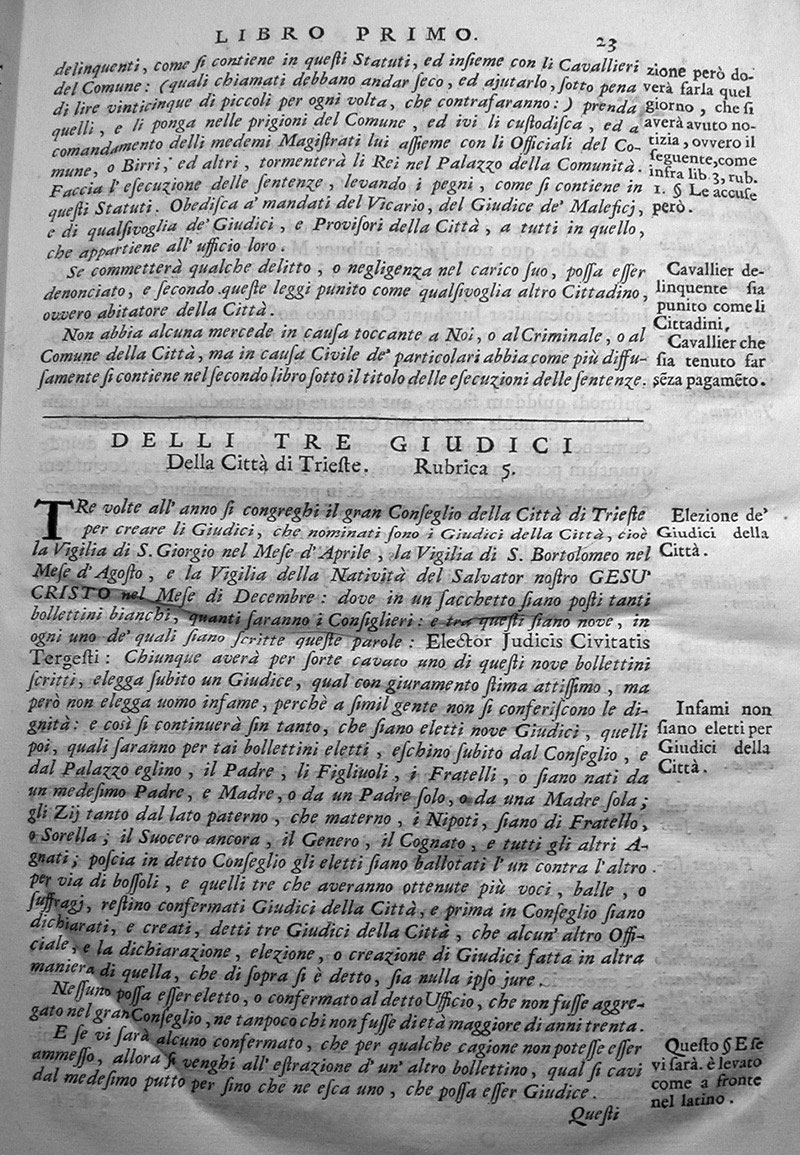 LIBRO PRIMO.
23
delinquenti, come ſi contiene in queſti Statuti, ed inſieme con li Cavallieri
del Comune: (quali chiamati debbano andar ſeco, ed ajutarlo, ſotto pena
di lire vinticinque di piccoli per ogni volta, che contrafaranno:) prenda
quelli, e li ponga nelle prigioni del Comune, ed ivi li cuſtodiſca, ed a
comandamento delli medemi Magiſtrati lui aſſieme con li Officiali del Co-
mune, o Birri, ed altri, tormenterà li Rei nel Palazzo della Comunità.
Faccia l' eſecuzione delle ſentenze, levando i pegni, come ſi contiene in
queſti Statuti. Obediſca a' mandati del Vicario, del Giudice de' Malefici,
e di qualſivoglia de' Giudici, e Proviſori della Città, a tutti in quello,
che appartiene all' ufficio loro.
zione però do-
verà farla quel
giorno, che ſi
averà avuto no-
tizia, ovvero il
ſeguente, come
infra lib. 3, rub.
1. § Le accuſe
però.
Se commetterà qualche delitto, o negligenza nel carico ſuo, poſſa eſſer
denonciato, e ſecondo queſte leggi punito come qualſivoglia altro Cittadino,
ovvero abitatore della Città.
Cavallier de-
linquente ſia
punito come li
Cittadini,
Non abbia alcuna mercede in cauſa toccante a Noi, o al Criminale, o al
Comune della Città, ma in cauſa Civile de' particolari abbia come più diffu-
ſamente ſi contiene nel ſecondo libro ſotto il titolo delle eſecuzioni delle ſentenze.
Cavallier che
ſia tenuto far
ſẽza pagamẽto.
DELLI TRE GIUDICI
Della Città di Trieſte. Rubrica 5.
TRe volte all' anno ſi congreghi il gran Conſeglio della Città di Trieſte
per creare li Giudici, che nominati ſono i Giudici della Città, cioè
la Vigilia di S. Giorgio nel Meſe d'Aprile, la Vigilia di S. Bortolomeo nel
Meſe d'Agoſto, e la Vigilia della Natività del Salvator noſtro GESU'
CRISTO nel Meſe di Decembre: dove in un ſacchetto ſiano poſti tanti
bollettini bianchi, quanti ſaranno i Conſiglieri: e tra queſti ſiano nove, in
ogni uno de' quali ſiano ſcritte queſte parole: Elector Judicis Civitatis
Tergeſti: Chiunque averà per ſorte cavato uno di queſti nove bollettini
ſcritti, elegga ſubito un Giudice, qual con giuramento ſtima attiſſimo, ma
però non elegga uomo infame, perchè a ſimil gente non ſi conferiſcono le di-
gnità: e così ſi continuerà ſin tanto, che ſiano eletti nove Giudici, quelli
poi, quali ſaranno per tai bollettini eletti, eſchino ſubito dal Conſeglio, e
dal Palazzo eglino, il Padre, li Figliuoli, i Fratelli, o ſiano nati da
un medeſimo Padre, e Madre, o da un Padre ſolo, o da una Madre ſola;
gli Zij tanto dal lato paterno, che materno, i Nipoti, ſiano di Fratello,
o Sorella; il Suocero ancora, il Genero, il Cognato, e tutti gli altri A-
gnati; poſcia in detto Conſeglio gli eletti ſiano ballotati l'un contra l'altro
per via di boſſoli, e quelli tre che averanno ottenute più voci, balle, o
ſuffragj, reſtino confermati Giudici della Città, e prima in Conſeglio ſiano
dichiarati, e creati, detti tre Giudici della Città, che alcun' altro Offi-
ciale, e la dichiarazione, elezione, o creazione di Giudici fatta in altra
maniera di quella, che di ſopra ſi è detto, ſia nulla ipſo jure.
Elezione de'
Giudici della
Città.
Infami non
ſiano eletti per
Giudici della
Città.
Neſſuno poſſa eſſer eletto, o confermato al detto Ufficio, che non fuſſe aggre-
gato nel gran Conſeglio, ne tanpoco chi non fuſſe di età maggiore di anni trenta.
E ſe vi ſarà alcuno confermato, che per qualche cagione non poteſſe eſſer
ammeſſo, allora ſi venghi all' eſtrazione d' un' altro bollettino, qual ſi cavi
dal medeſimo putto per ſino che ne eſca uno, che poſſa eſſer Giudice.
Queſto § E ſe
vi ſarà. è levato
come a fronte
nel latino.
Queſti